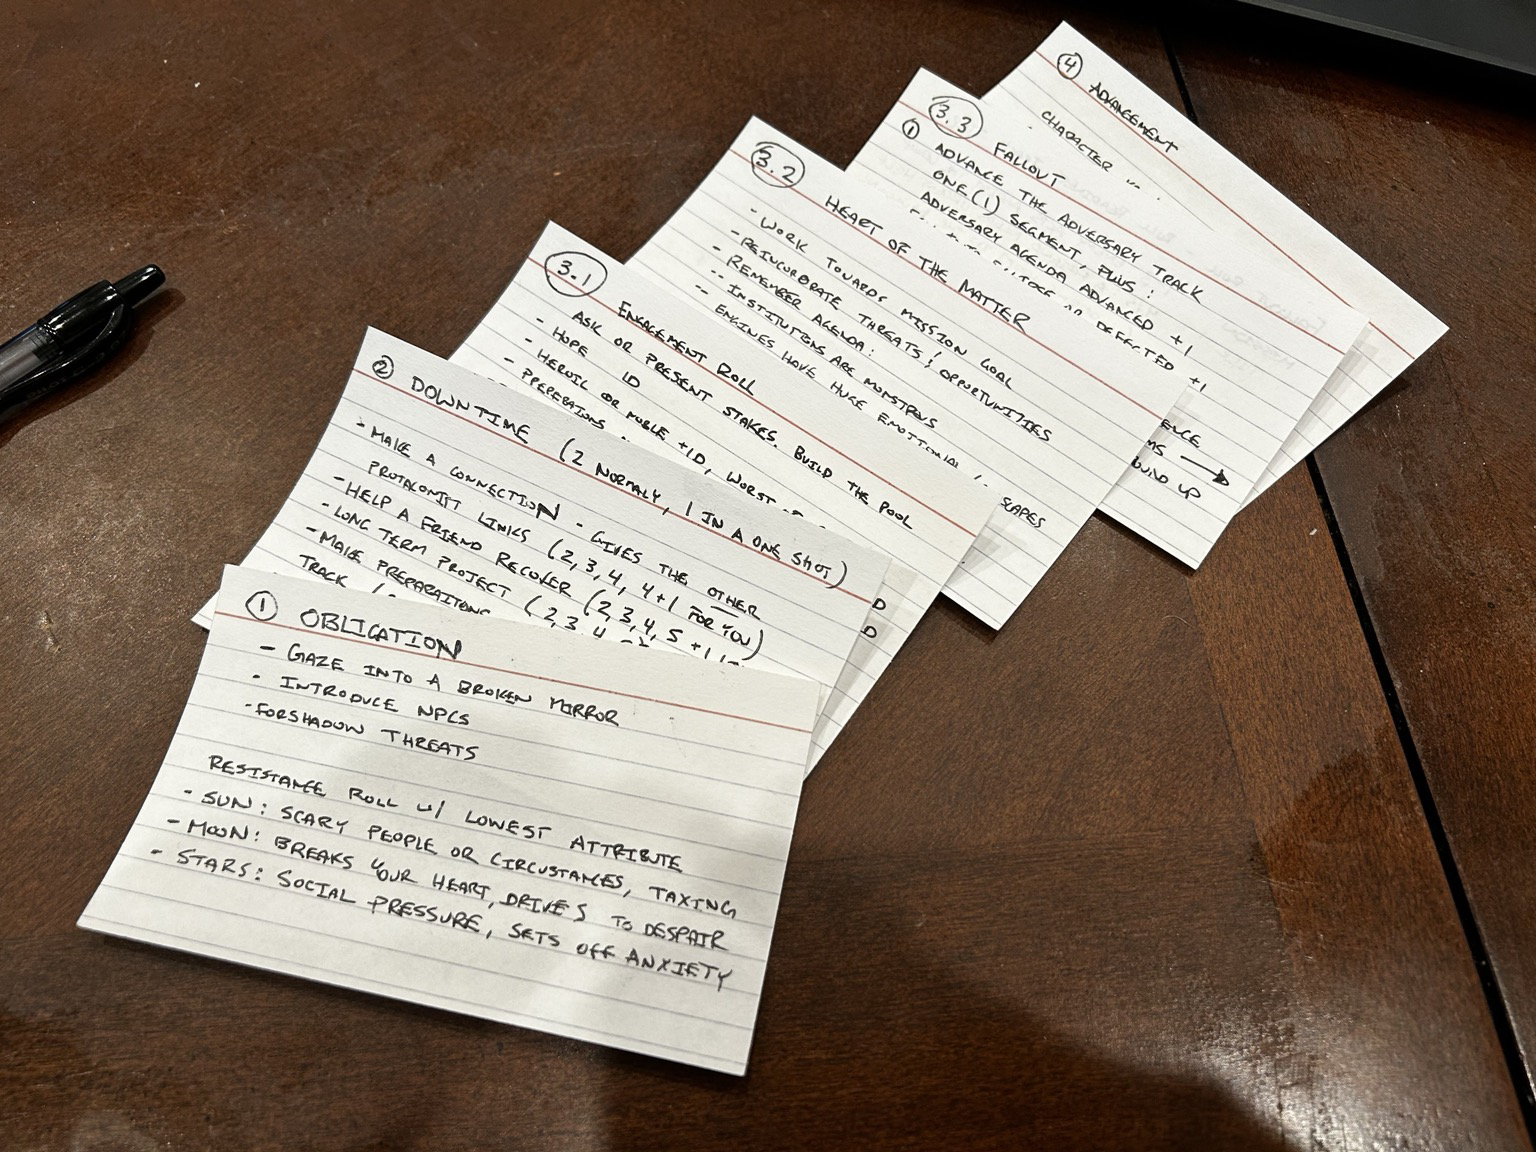 ① OBLIGATION
- GAZE INTO A BROKEN MIRROR
- INTRODUCE NPCS
- FORSHADOW THREATS
RESISTANCE ROLL W/ LOWEST ATTRIBUTE
- SUN: SCARY PEOPLE OR CIRCUSTANCES, TAXING
- MOON: BREAKS YOUR HEART, DRIVES TO DESPAIR
- STARS: SOCIAL PRESSURE, SETS OFF ANXIETY
② DOWNTIME (2 NORMALY, 1 IN A ONE SHOT)
- MAKE A CONNECTION - GIVES THE OTHER
PROTAGONIST LINKS (2, 3, 4, 4+1 FOR YOU)
- HELP A FRIEND RECOVER (2, 3, 4, 5
- LONG TERM PROJECT (2, 3, 4
- MAKE PREPARAITONS
TRACK
3.1 ENGAGEMENT ROLL
ASK OR PRESENT STAKES. BUILD THE POOL
- HOPE 1D
- HEROIC OR NOBLE +1D, WORST
- PREPERATIONS
3.2 HEART OF THE MATTER
- WORK TOWARDS MISSION GOAL
- REINCORORATE THREATS & OPPORTUNITIES
- REMEMBER AGENDA:
-- INSTITUTIONS ARE MONSTROUS
-- ENGINES HAVE HUGE EMOTIONAL
SCAPES
3.3 FALLOUT
① ADVANCE THE ADVERSARY TRACK
ONE (1) SEGMENT, PLUS:
ADVERSARY AGENDA ADVANCED +1
OR DEFECTED +1
BUILD UP
④ ADVANCEMENT
CHARACTER